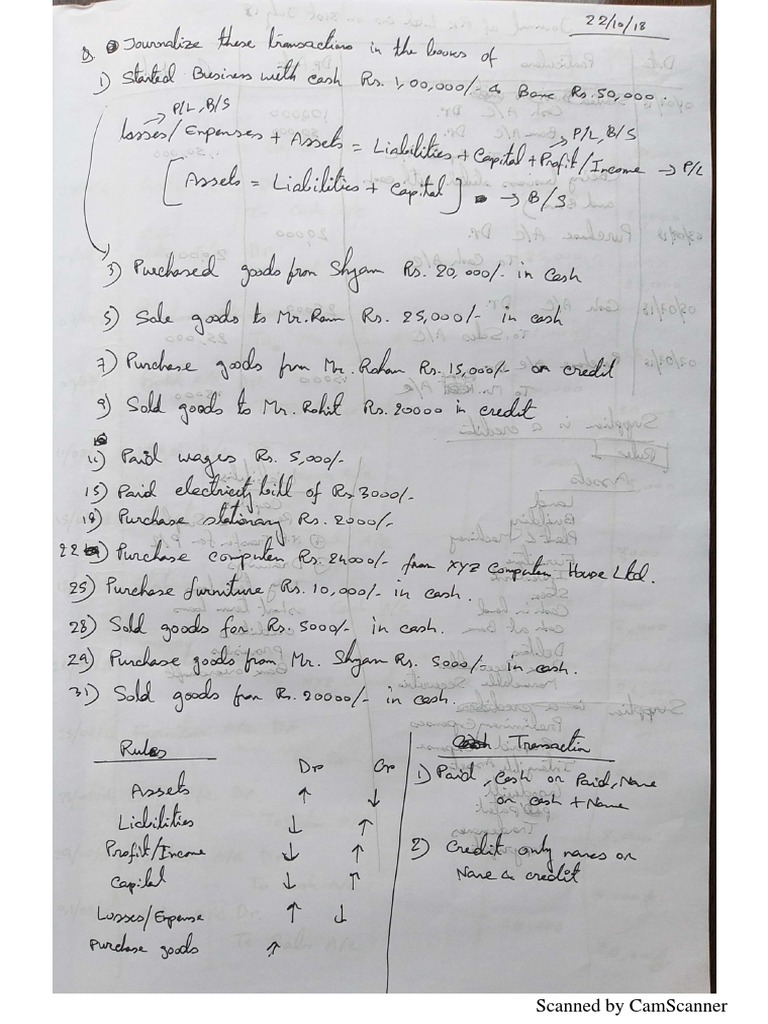 22/10/18
Q. Journalize these transactions in the books of
1) Started Business with cash Rs. 1,00,000/- & Bank Rs. 50,000.
P/L, B/S
P/L, B/S
losses/Expenses + Assets = Liabilities + Capital + Profit/Income → P/L
[Assets = Liabilities + Capital] → B/S
3) Purchased goods from Shyam Rs. 20,000/- in Cash
5) Sale goods to Mr. Ram Rs. 25,000/- in cash
7) Purchase goods from Mr. Rohan Rs. 15,000/- on credit
9) Sold goods to Mr. Rohit Rs. 20000 in credit
11) Paid wages Rs. 5,000/-
15) Paid electricity bill of Rs. 3000/-
18) Purchase stationary Rs. 2000/-
22) Purchase computer Rs. 24000/- from XYZ Computer House Ltd.
25) Purchase furniture Rs. 10,000/- in cash.
28) Sold goods for Rs. 5000/- in cash.
29) Purchase goods from Mr. Shyam Rs. 5000/- in cash.
31) Sold goods from Rs. 20000/- in cash.
Rules
Dr Cr
Assets ↑ ↓
Liabilities ↓ ↑
Profit/Income ↓ ↑
Capital ↓ ↑
Losses/Expense ↑ ↓
Purchase goods ↑
Transaction
1) Paid, Cash or Paid, Name
or cash + Name
2) Credit only names or
Name & credit
Scanned by CamScanner